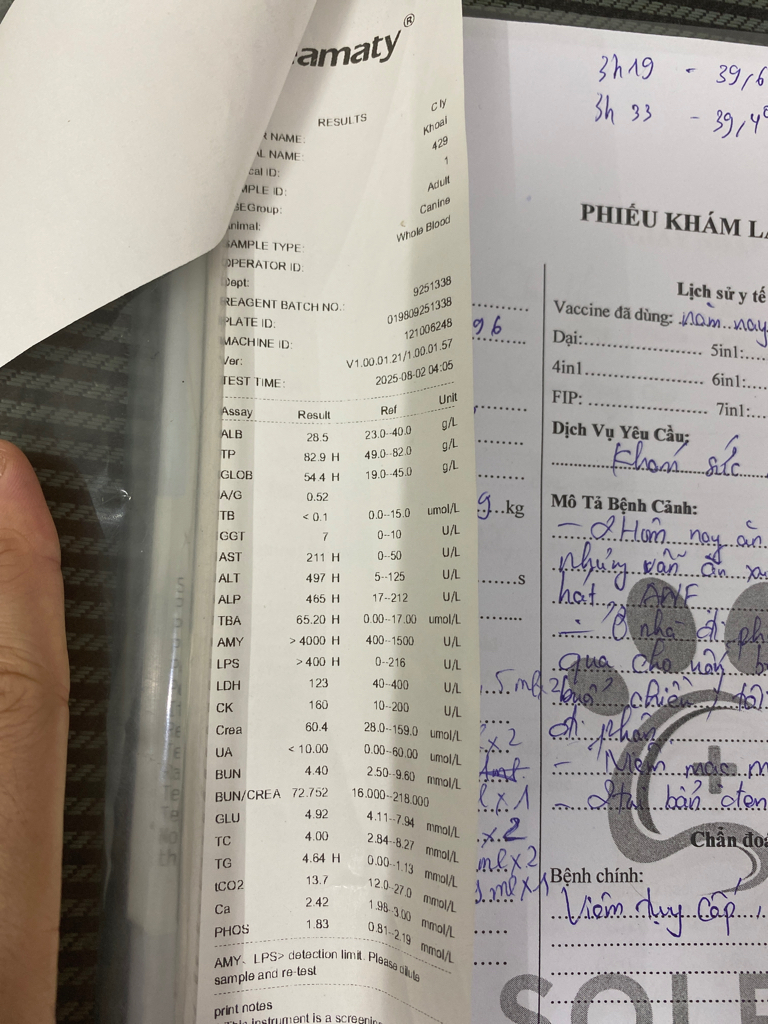 amaty®
RESULTS
NAME: Cly
NAME: Khoai
cal ID: 429
MPLE ID: 1
Group: Adult
nimal: Canine
SAMPLE TYPE: Whole Blood
OPERATOR ID:
Dept:
REAGENT BATCH NO.: 9251338
PLATE ID: 019809251338
MACHINE ID: 121006248
Ver: V1.00.01.21/1.00.01.57
TEST TIME: 2025-08-02 04:05
Assay Result Ref Unit
ALB 28.5 23.0--40.0 g/L
TP 82.9 H 49.0--82.0 g/L
GLOB 54.4 H 19.0--45.0 g/L
A/G 0.52
TB < 0.1 0.0--15.0 umol/L
GGT 7 0--10 U/L
AST 211 H 0--50 U/L
ALT 497 H 5--125 U/L
ALP 465 H 17--212 U/L
TBA 65.20 H 0.00--17.00 umol/L
AMY > 4000 H 400--1500 U/L
LPS > 400 H 0--216 U/L
LDH 123 40--400 U/L
CK 160 10--200 U/L
Crea 60.4 28.0--159.0 umol/L
UA < 10.00 0.00--60.00 umol/L
BUN 4.40 2.50--9.60 mmol/L
BUN/CREA 72.752 16.000--218.000
GLU 4.92 4.11--7.94 mmol/L
TC 4.00 2.84--8.27 mmol/L
TG 4.64 H 0.00--1.13 mmol/L
tCO2 13.7 12.0--27.0 mmol/L
Ca 2.42 1.98--3.00 mmol/L
PHOS 1.83 0.81--2.19 mmol/L
AMY、LPS> detection limit. Please dilute
sample and re-test
print notes
This instrument is a screening
3h19 - 39,6
3h 33 - 39,4°
PHIẾU KHÁM LÂ
Lịch sử y tế
Vaccine đã dùng: năm nay
Dại: 5in1:
4in1 6in1:
FIP: 7in1:
Dịch Vụ Yêu Cầu:
Khám sức
96
9 kg
s
Mô Tả Bệnh Cảnh:
- 2 Hôm nay ăn
nhưng vẫn ăn
hạt
- Ở nhà đi
qua cho
buổi chiều tối
đi phân
-
-
5 ml x 2
x 2
x 1
x 2
ml x 2
ml x 1
Chẩn đoá
Bệnh chính:
Viêm tụy cấp,
SOLE